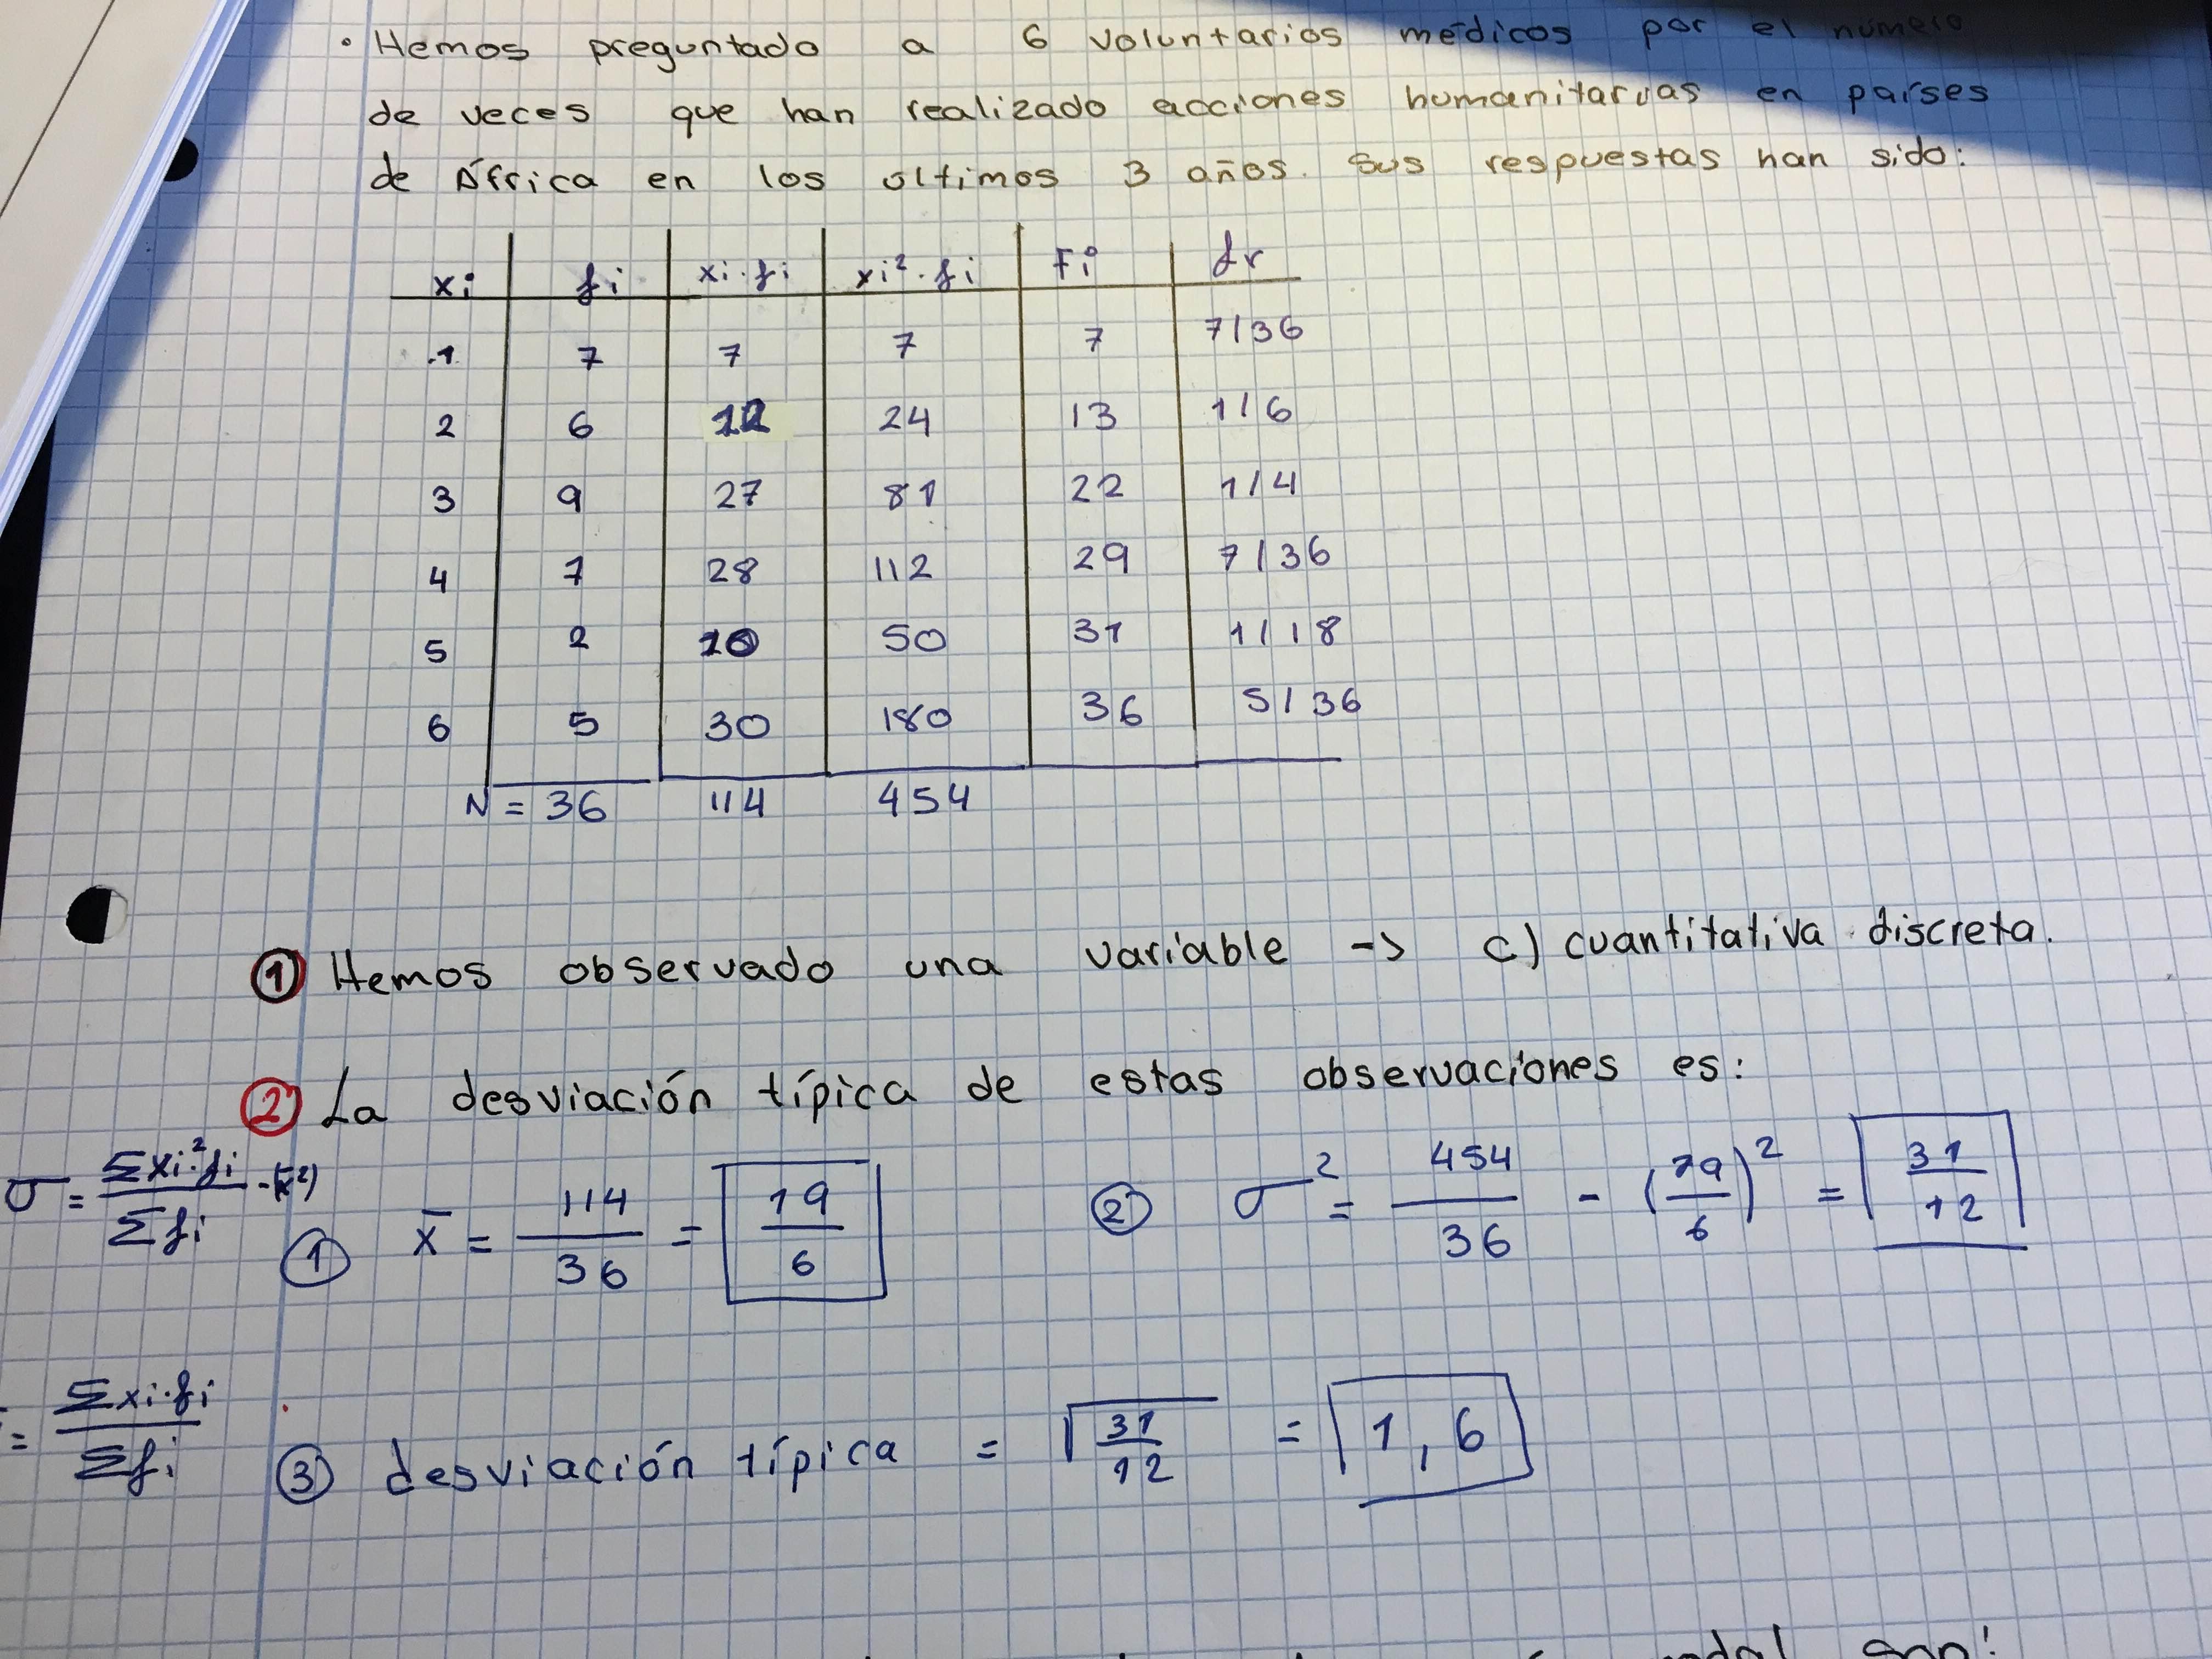 • Hemos preguntado a 6 voluntarios médicos por el número
de veces que han realizado acciones humanitarias en países
de África en los últimos 3 años. Sus respuestas han sido:
xi fi xi·fi xi²·fi Fi fr
1 7 7 7 7 7/36
2 6 12 24 13 1/6
3 9 27 81 22 1/4
4 7 28 112 29 7/36
5 2 10 50 31 1/18
6 5 30 180 36 5/36
N = 36 114 454
① Hemos observado una variable -> c) cuantitativa discreta.
② La desviación típica de estas observaciones es:
σ = Σxi²·fi / Σfi - (x̄²)
① x̄ = 114/36 = 19/6
② σ² = 454/36 - (19/6)² = 31/12
= Σxi·fi / Σfi
③ desviación típica = √31/12 = 1,6
son: